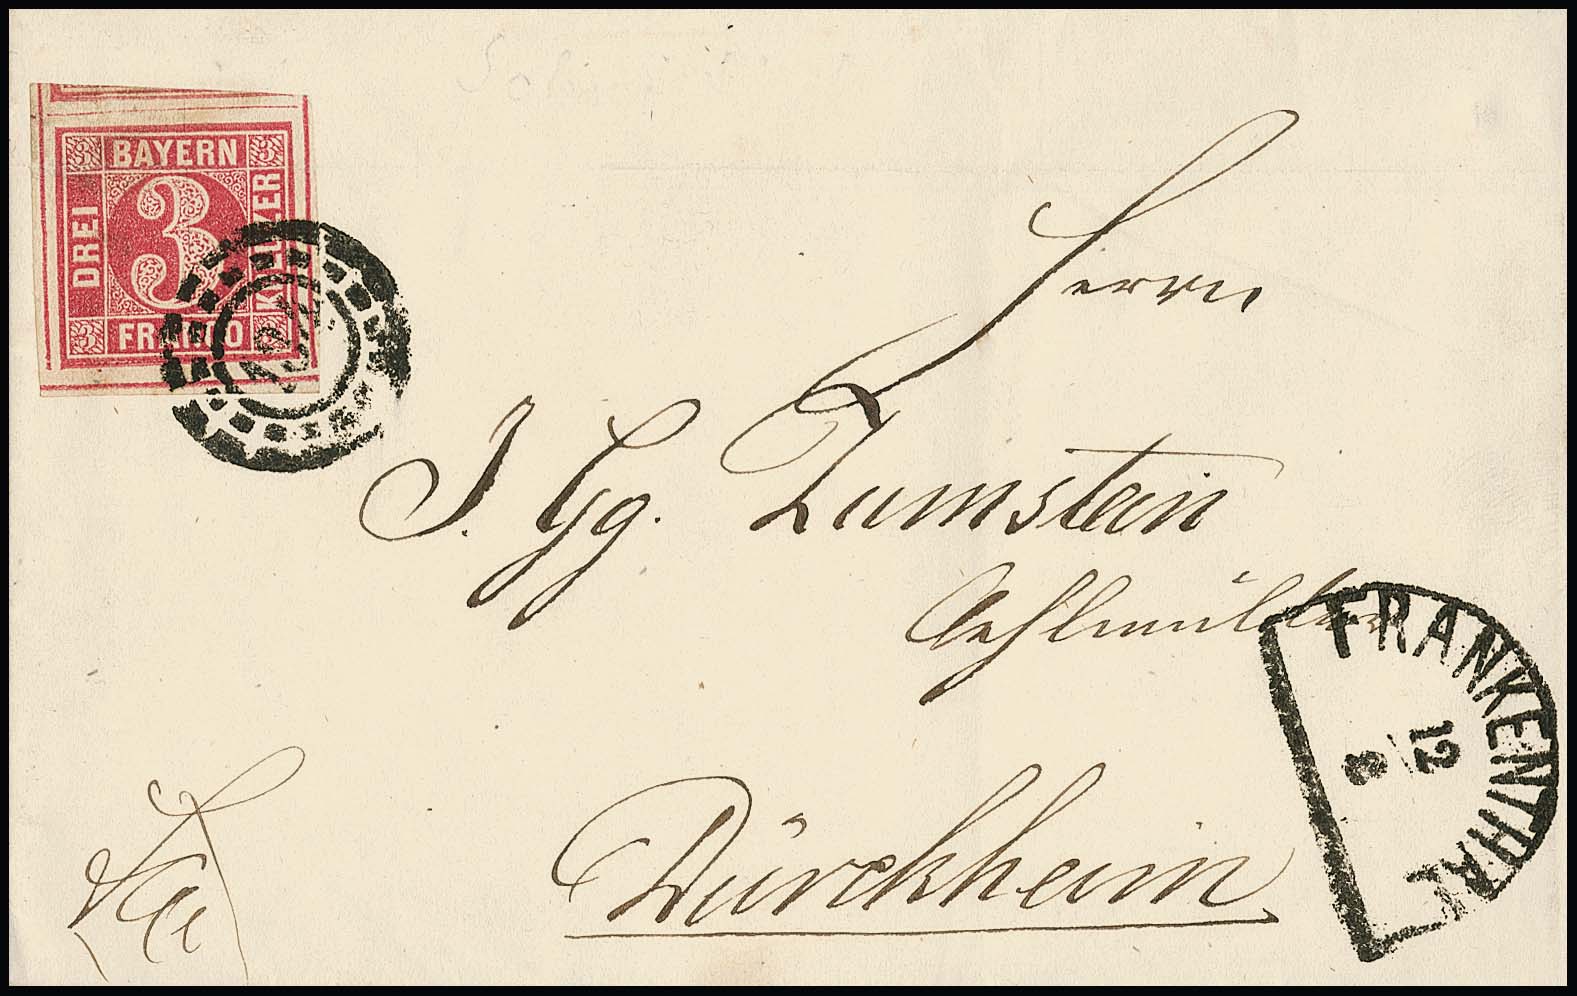 BAYERN
DREI
3
KREUZER
FRANCO
Herrn
J. Gg. Zumstein
Oehlmüller
Dürckheim
FRANKENTHAL
12
8